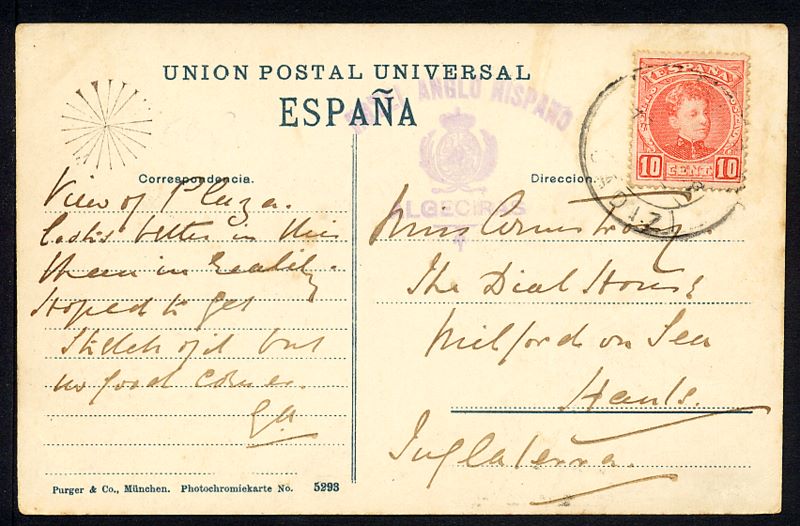 UNION POSTAL UNIVERSAL
ESPAÑA
HOTEL ANGLO HISPANO
ALGECIRAS
ESPAÑA
10 CENT 10
CADIZ
Correspondencia.
Direccion.
View of Plaza.
Looks better in this
than in reality
Hoped to get
Sketch of it but
no good corner.
Miss Armstrong.
The Dial House
Milford on Sea
Hants.
Inglaterra.
Purger & Co., München. Photochromiekarte No. 5293